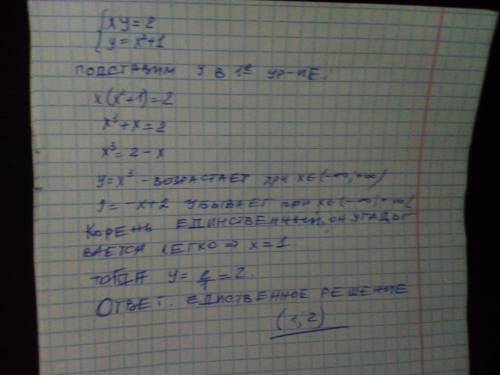 { xy = 2
{ y = x²+1
ПОДСТАВИМ У В 1ое УР-ИЕ.
x(x²+1)=2
x³+x=2
x³=2-x
y=x³ - ВОЗРАСТАЕТ при x∈(-∞;+∞)
y=-x+2 УБЫВАЕТ при x∈(-∞;+∞)
КОРЕНЬ ЕДИНСТВЕННЫЙ, ОН УГАДЫ
ВАЕТСЯ ЛЕГКО ⇒ x=1
ТОГДА y= 2/1 =2.
ОТВЕТ. ЕДИСТВЕННОЕ РЕШЕНИЕ
(1; 2)